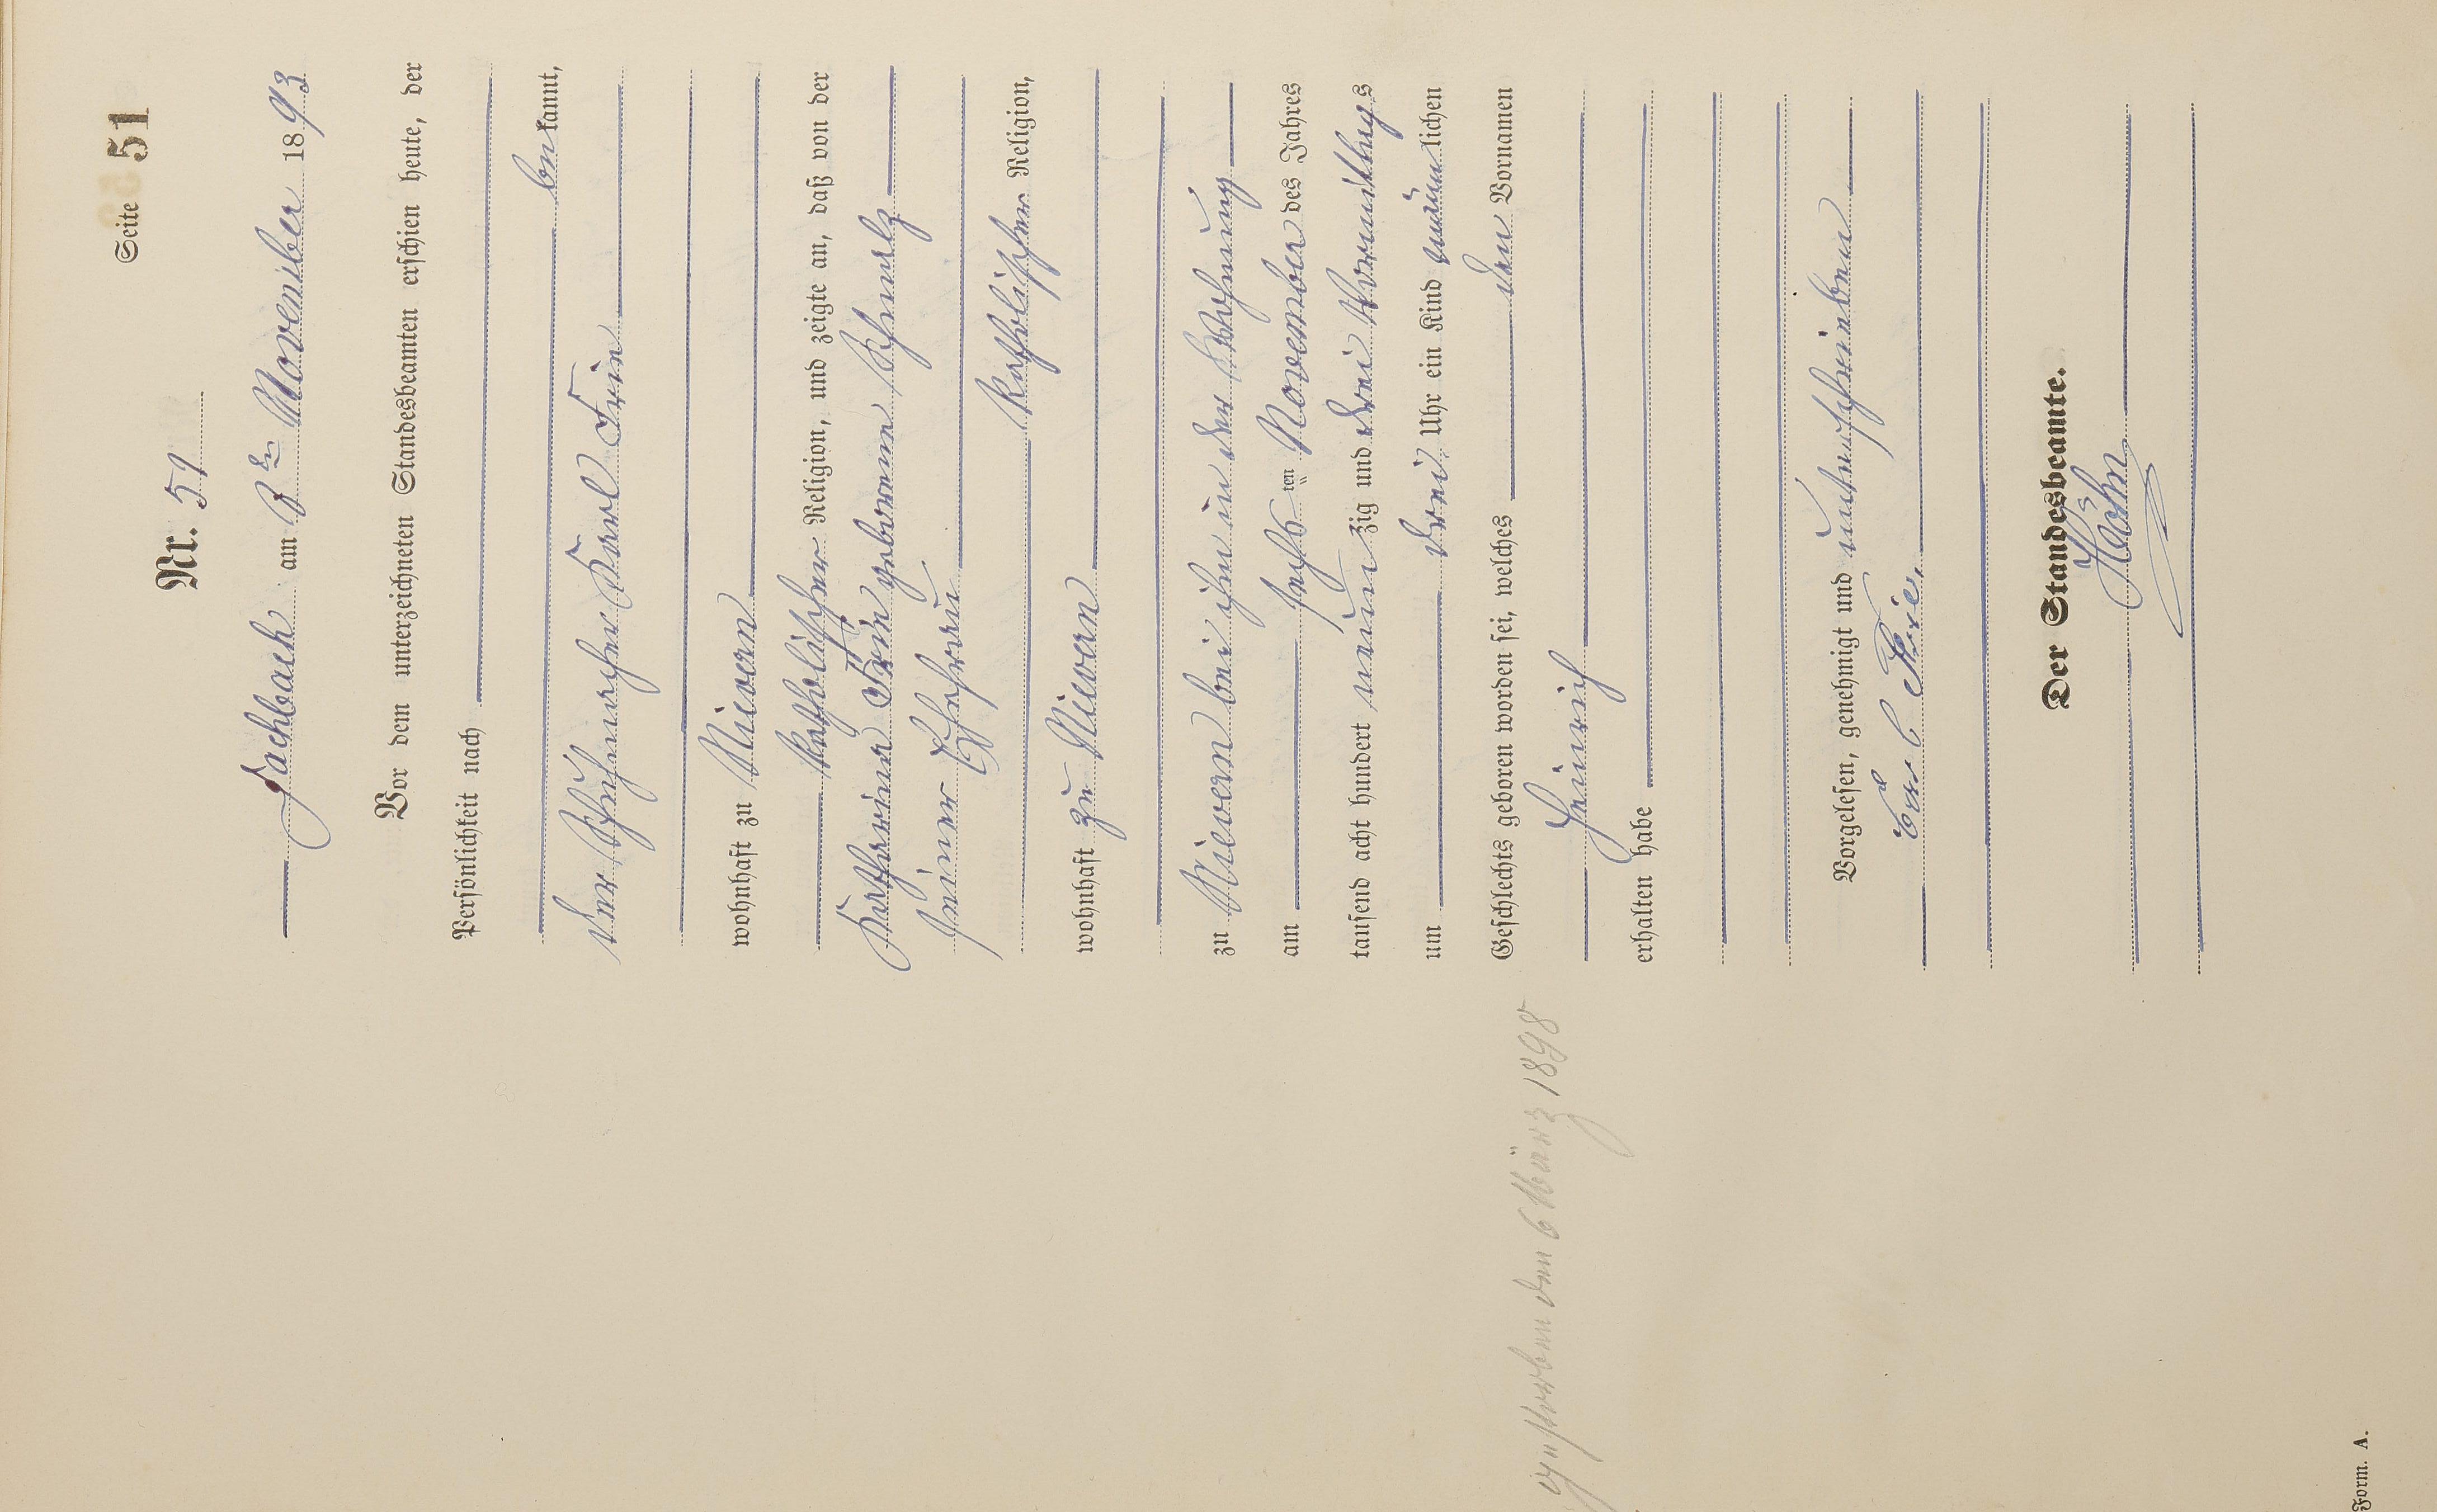 Seite 51
Nr. 51
Fachbach am 8ten November 1893
Vor dem unterzeichneten Standesbeamten erschien heute, der
Persönlichkeit nach
bekannt,
der Schuhmacher Karl Frin
wohnhaft zu Nievern
katholischer Religion, und zeigte an, daß von der
Katharina Frin geborene Schmelz
seiner Ehefrau
katholischer Religion,
wohnhaft zu Nievern
zu Nievern bei ihm in der Wohnung
am sechsten November des Jahres
tausend acht hundert neunzig und drei Vormittags
um drei Uhr ein Kind männlichen
Geschlechts geboren worden sei, welches den Vornamen
Heinrich
erhalten habe
gestorben den 6 März 1898
Vorgelesen, genehmigt und unterschrieben
Carl
Der Standesbeamte.
Höhn
Form. A.